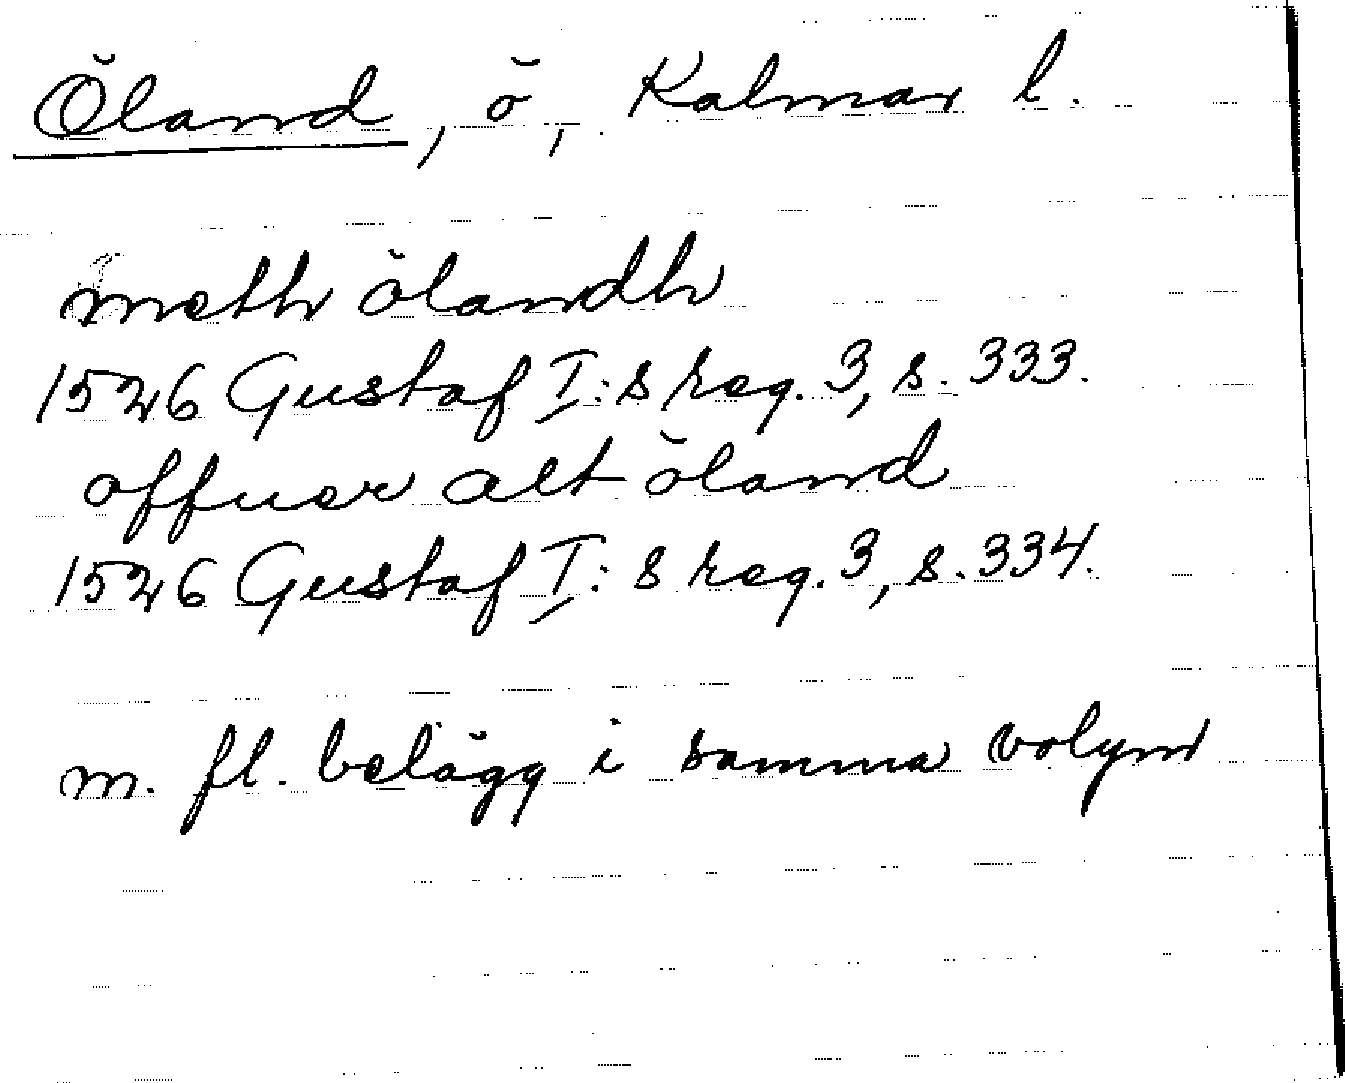 Öland, ö, Kalmar l.
meth ölandh
1526 Gustaf I:s reg. 3, s. 333.
offuer alt öland
1526 Gustaf I:s reg. 3, s. 334.
m. fl. belägg i samma volym